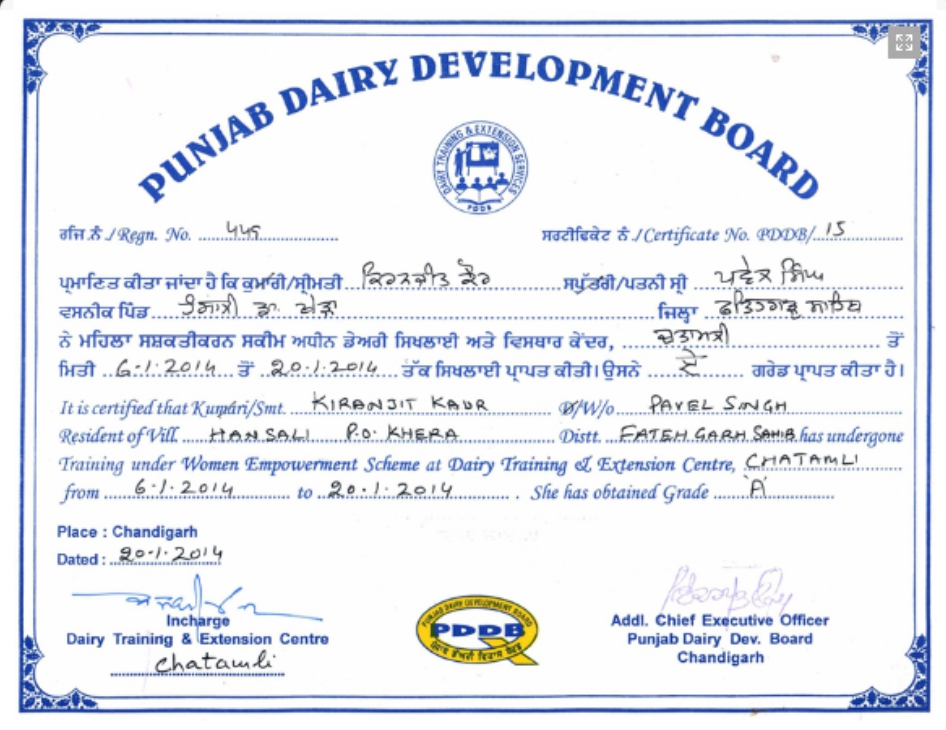 PUNJAB DAIRY DEVELOPMENT BOARD
DAIRY TRAINING & EXTENSION SERVICES
PDDB
ਰਜਿ.ਨੰ./Regn. No. ਸਰਟੀਫਿਕੇਟ ਨੰ./Certificate No. PDDB/ 15
ਪ੍ਰਮਾਣਿਤ ਕੀਤਾ ਜਾਂਦਾ ਹੈ ਕਿ ਕੁਮਾਰੀ/ਸ੍ਰੀਮਤੀ ਕਿਰਨਜੀਤ ਕੌਰ ਸਪੁੱਤਰੀ/ਪਤਨੀ ਸ੍ਰੀ ਪਵੇਲ ਸਿੰਘ
ਵਸਨੀਕ ਪਿੰਡ ਹੰਸਾਲੀ ਡਾ. ਖੇੜਾ ਜਿਲ੍ਹਾ ਫਤਿਹਗੜ੍ਹ ਸਾਹਿਬ
ਨੇ ਮਹਿਲਾ ਸਸ਼ਕਤੀਕਰਨ ਸਕੀਮ ਅਧੀਨ ਡੇਅਰੀ ਸਿਖਲਾਈ ਅਤੇ ਵਿਸਥਾਰ ਕੇਂਦਰ, ਚਤਾਮਲੀ ਤੋਂ
ਮਿਤੀ 6-1-2014 ਤੋਂ 20-1-2014 ਤੱਕ ਸਿਖਲਾਈ ਪ੍ਰਾਪਤ ਕੀਤੀ। ਉਸਨੇ ਗਰੇਡ ਪ੍ਰਾਪਤ ਕੀਤਾ ਹੈ।
It is certified that Kumari/Smt. KIRANJIT KAUR D/W/o PAVEL SINGH
Resident of Vill. HANSALI P.O. KHERA Distt. FATEHGARH SAHIB has undergone
Training under Women Empowerment Scheme at Dairy Training & Extension Centre, CHATAMLI
from 6-1-2014 to 20-1-2014. She has obtained Grade 'A'
Place : Chandigarh
Dated : 20-1-2014
Incharge
Dairy Training & Extension Centre
Chatamli
PUNJAB DAIRY DEVELOPMENT BOARD
PDDB
ਪੰਜਾਬ ਡੇਅਰੀ ਵਿਕਾਸ ਬੋਰਡ
Addl. Chief Executive Officer
Punjab Dairy Dev. Board
Chandigarh